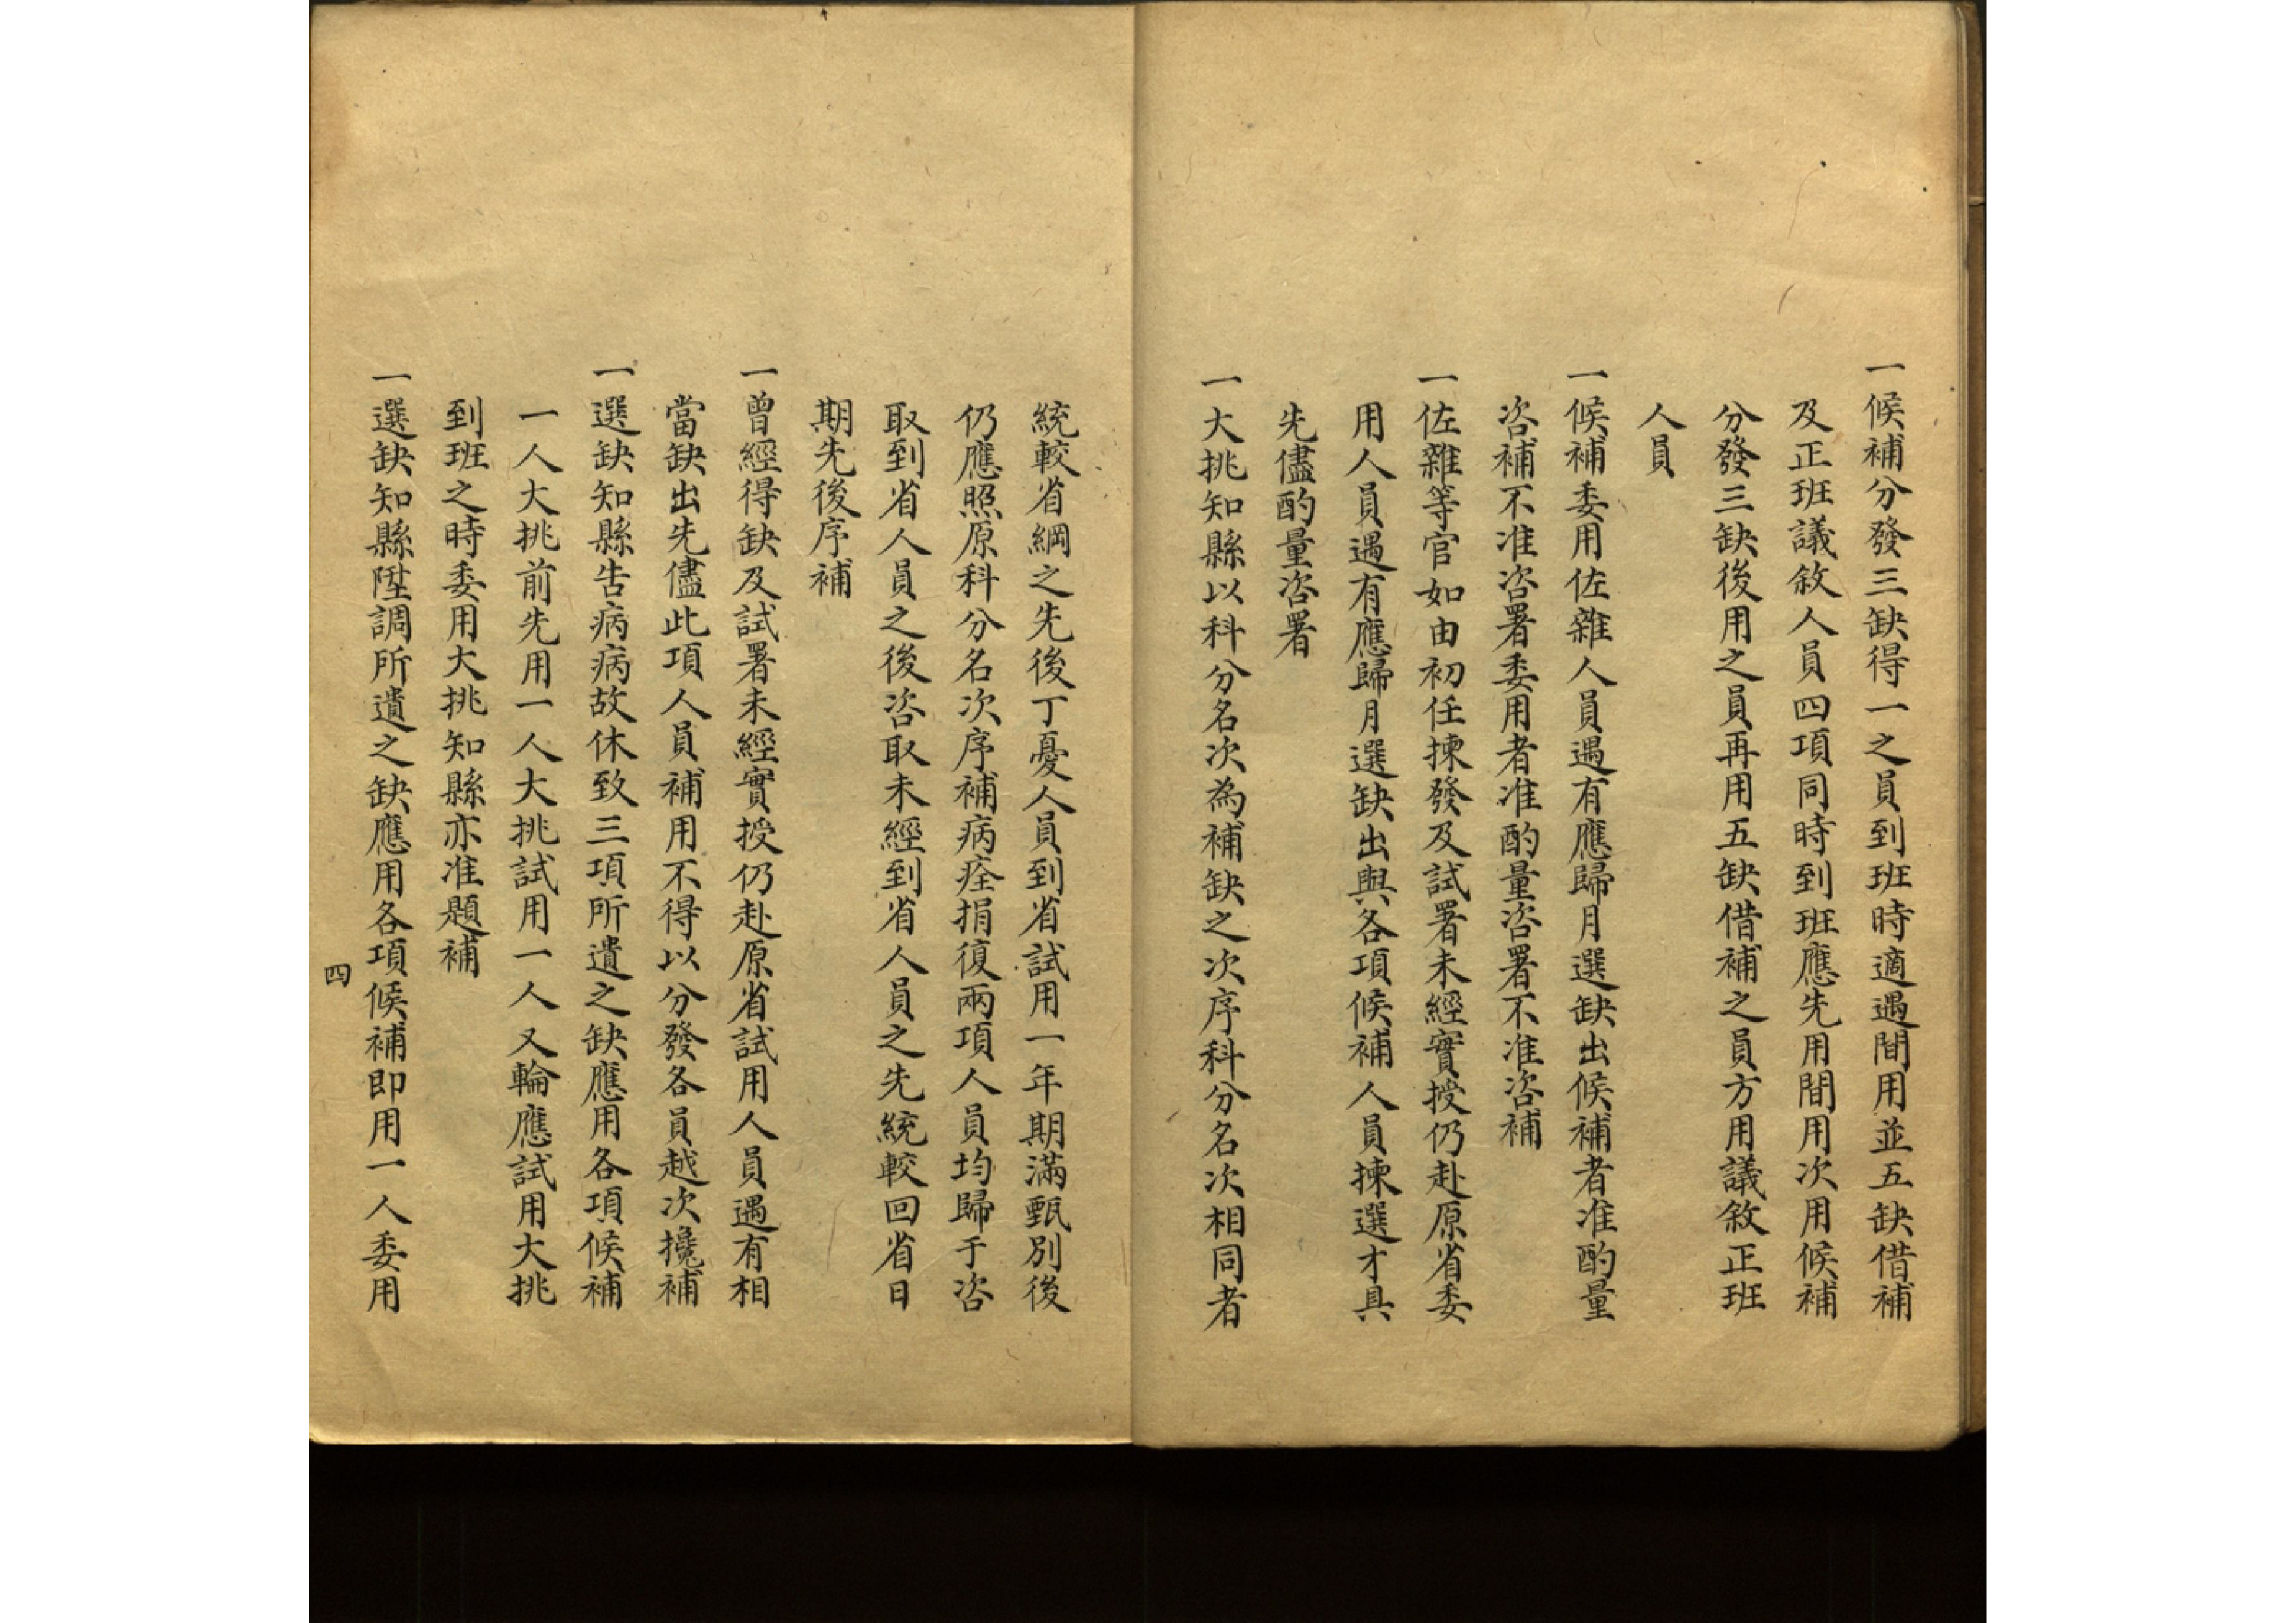 一候補分發三缺得一之員到班時適遇間用並五缺借補
及正班議敘人員四項同時到班應先用間用次用候補
分發三缺後用之員再用五缺借補之員方用議敘正班
人員
一候補委用佐雜人員遇有應歸月選缺出候補者准酌量
咨補不准咨署委用者准酌量咨署不准咨補
一佐雜等官如由初任揀發及試署未經實授仍赴原省委
用人員遇有應歸月選缺出與各項候補人員揀選才具
先儘酌量咨署
一大挑知縣以科分名次為補缺之次序科分名次相同者
統較省綱之先後丁憂人員到省試用一年期滿甄別後
仍應照原科分名次序補病痊捐復兩項人員均歸于咨
取到省人員之後咨取未經到省人員之先統較回省日
期先後序補
一曾經得缺及試署未經實授仍赴原省試用人員遇有相
當缺出先儘此項人員補用不得以分發各員越次攙補
一選缺知縣告病病故休致三項所遺之缺應用各項候補
一人大挑前先用一人大挑試用一人又輪應試用大挑
到班之時委用大挑知縣亦准題補
一選缺知縣陞調所遺之缺應用各項候補即用一人委用
四